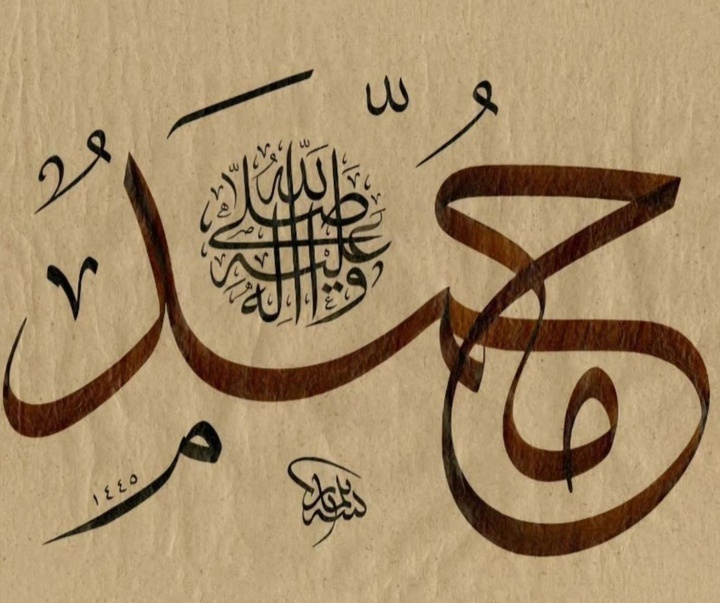 مُحَمَّدٌ
صلى الله عليه وآله
١٤٤٥